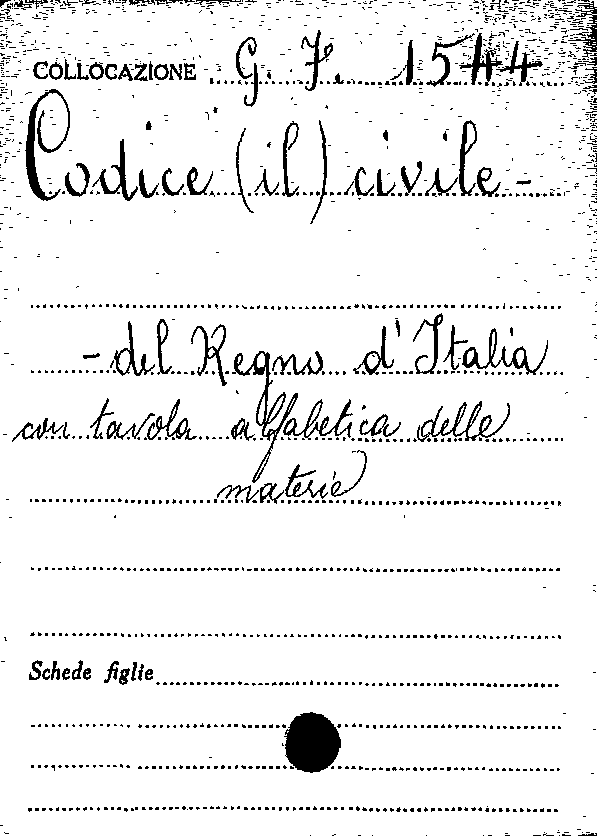 COLLOCAZIONE G. F. 1544
Codice (il) civile -
- del Regno d'Italia
con tavola alfabetica delle
materie
Schede figlie